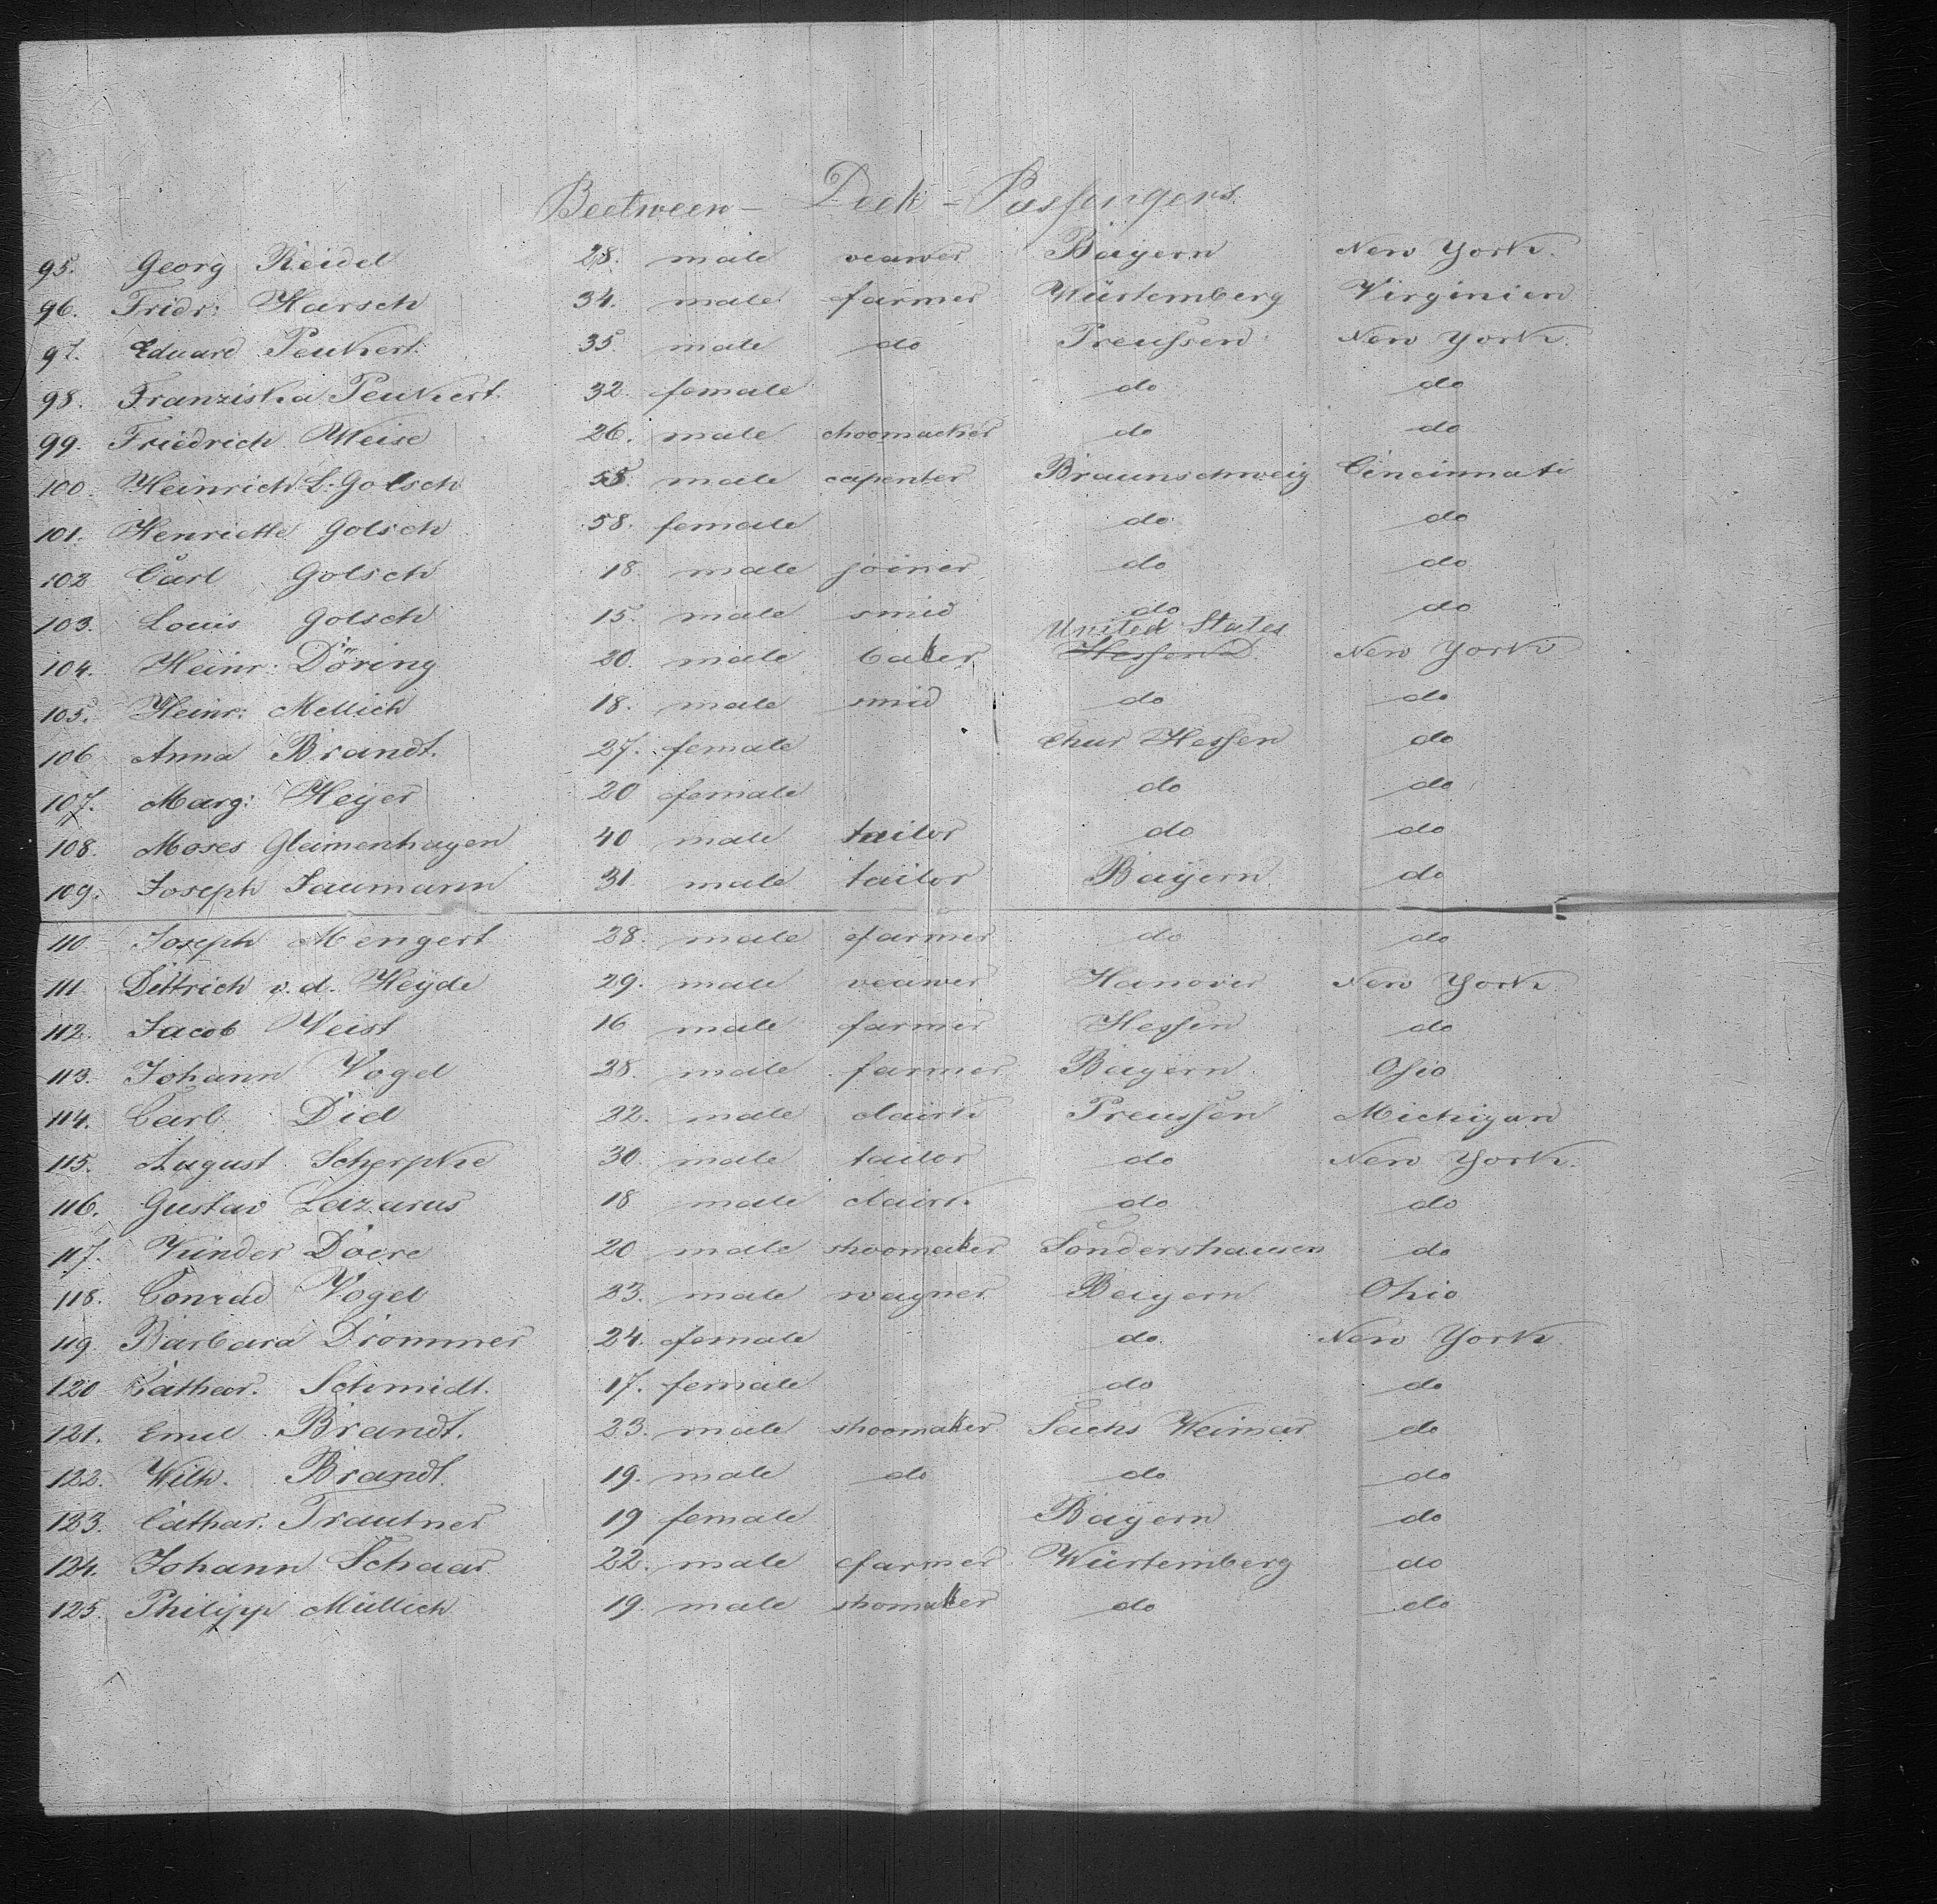 Beetween - Deck - Passengers.
95. Georg Reidel 28. male veawer Bayern New York.
96. Fridr: Harsch 34. male farmer Würtemberg Virginien
97. Eduard Peukert. 35. male do Preussen New York.
98. Franziska Peukert. 32. female do do
99. Friedrich Weise 26. male choomacker do do
100. Heinrich L. Golsch 55. male capenter Braunschweig Cincinnati
101. Henriette Golsch 58. female do do
102 Carl Golsch 18. male joiner do do
103. Louis Golsch 15. male smid do do
United States
104. Heinr: Döring 20. male baker Hessen D. New York
105. Heinr: Mellich 18. male smid do do
106 Anna Brandt. 27. female Chur Hessen do
107. Marg: Heyer 20 female do do
108. Moses Gleimenhagen 40 male tailor do do
109. Joseph Jaumann 31. male tailor Bayern do
110 Joseph Mengert 28. male farmer do do
111 Dettrich v. d. Heyde 29. male veawer Hanover New York.
112. Jacob Weist 16 male farmer Hessen do
113. Johann Vogel 28. male farmer Bayern Ohio
114. Carl Diel 22. male clairk Preussen Michigan
115. August Scherpke 30. male tailor do New York.
116. Gustav Lazarus 18 male clairk do do
117. Günder Doere 20 male shoomaker Sondershausen do
118. Conrad Vogel 23. male wagner Bayern Ohio
119. Barbara Drommer 24. female do New York.
120 Cathar. Schmidt. 17. female do do
121. Emil Brandt. 23. male shoomaker Sachs Weimar do
122. Wilh. Brandt. 19. male do do do
123. Cathar. Trautner 19 female Bayern do
124. Johann Schaar 22. male farmer Würtemberg do
125. Philipp Müllich 19. male shomaker do do